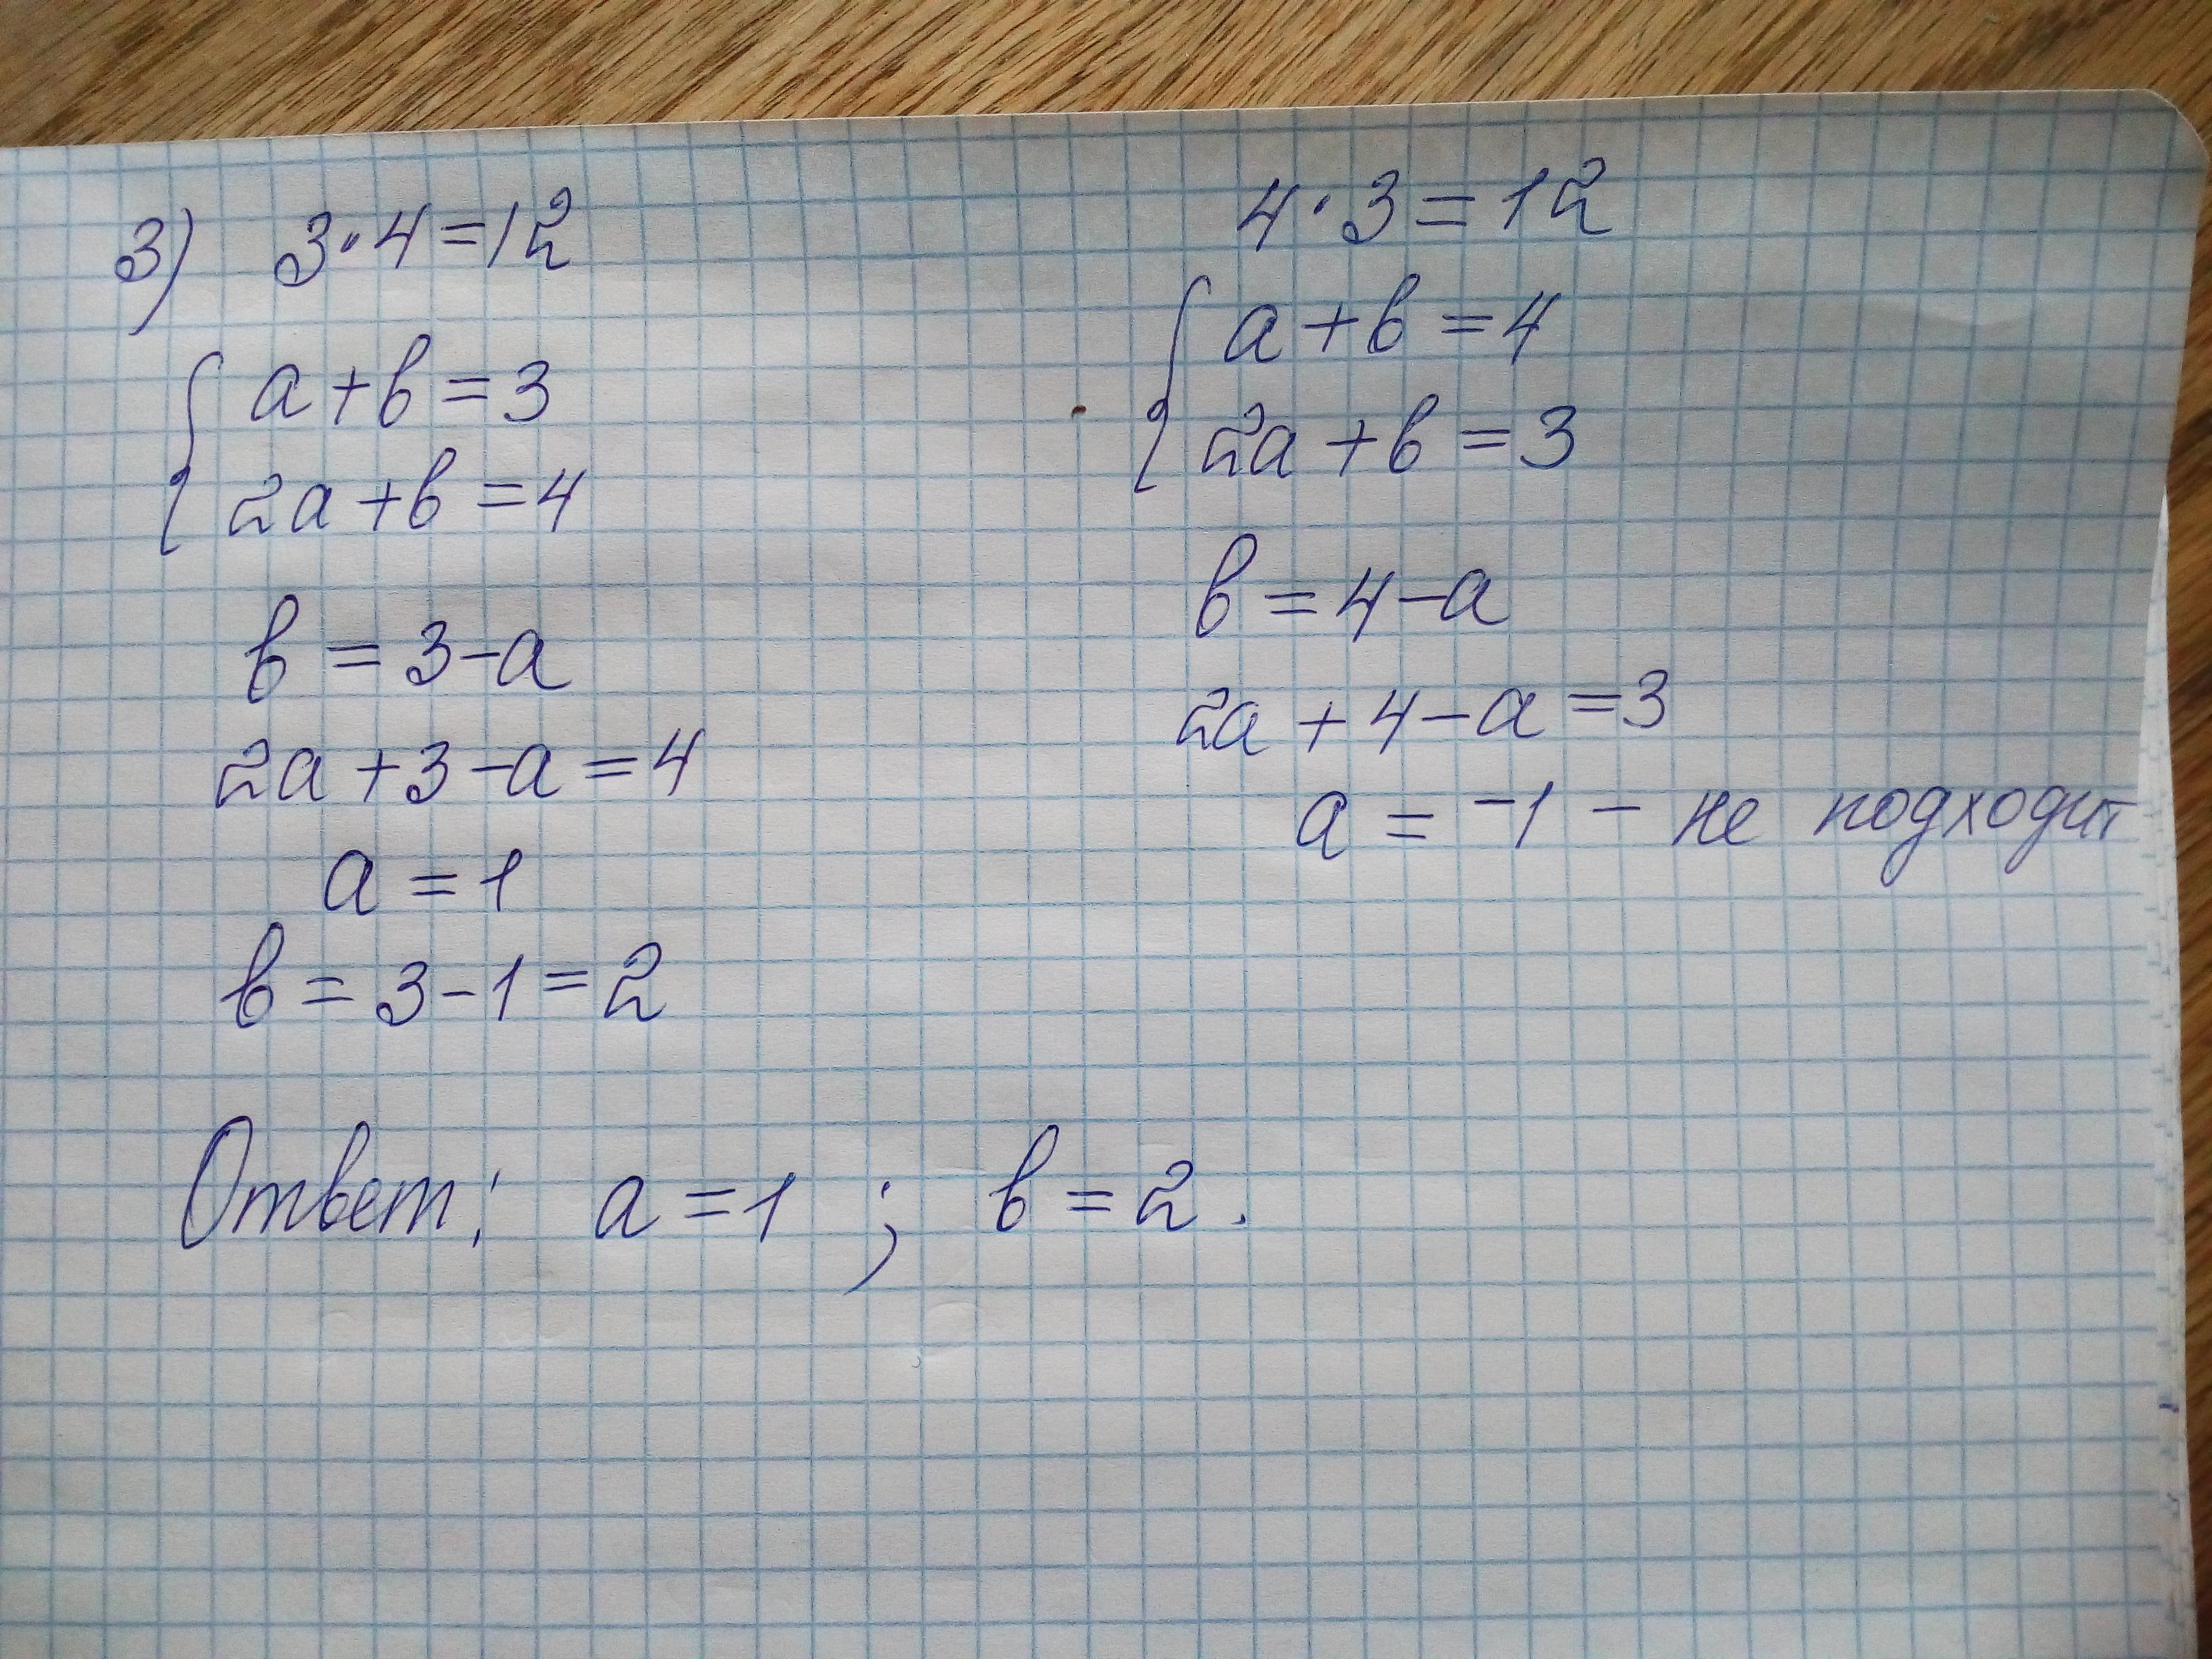 3) 3·4=12
{ a+b=3
2a+b=4
b=3-a
2a+3-a=4
a=1
b=3-1=2
4·3=12
{ a+b=4
2a+b=3
b=4-a
2a+4-a=3
a=-1 - не подходит
Ответ: a=1 ; b=2.